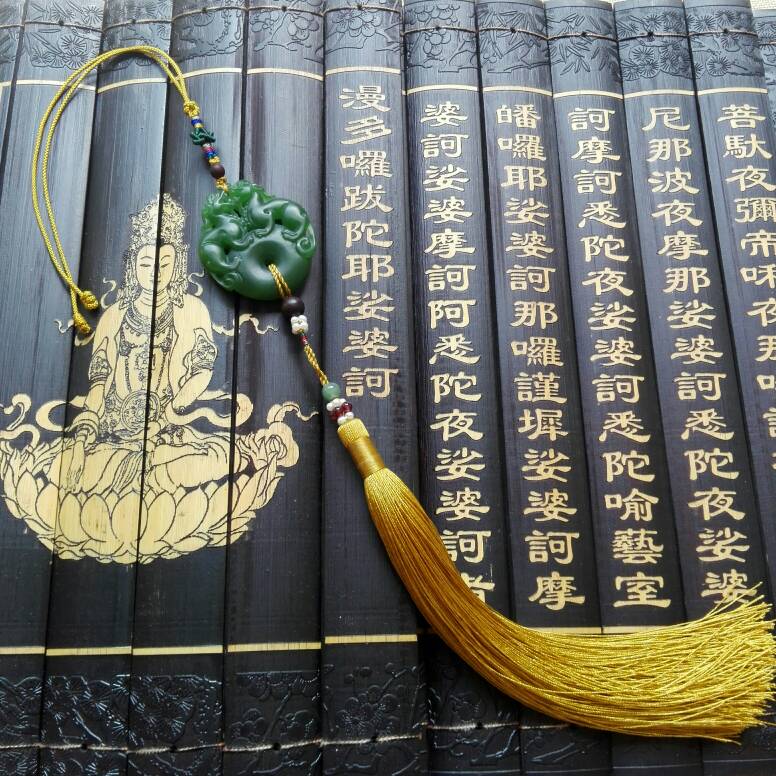 菩馱夜彌帝唎夜那
尼那波夜摩那娑婆訶悉陀夜娑婆
訶摩訶悉陀夜娑婆訶悉陀喻藝室
皤囉耶娑婆訶那囉謹墀娑婆訶摩
婆訶娑婆摩訶阿悉陀夜娑婆訶者
漫多囉跋陀耶娑婆訶